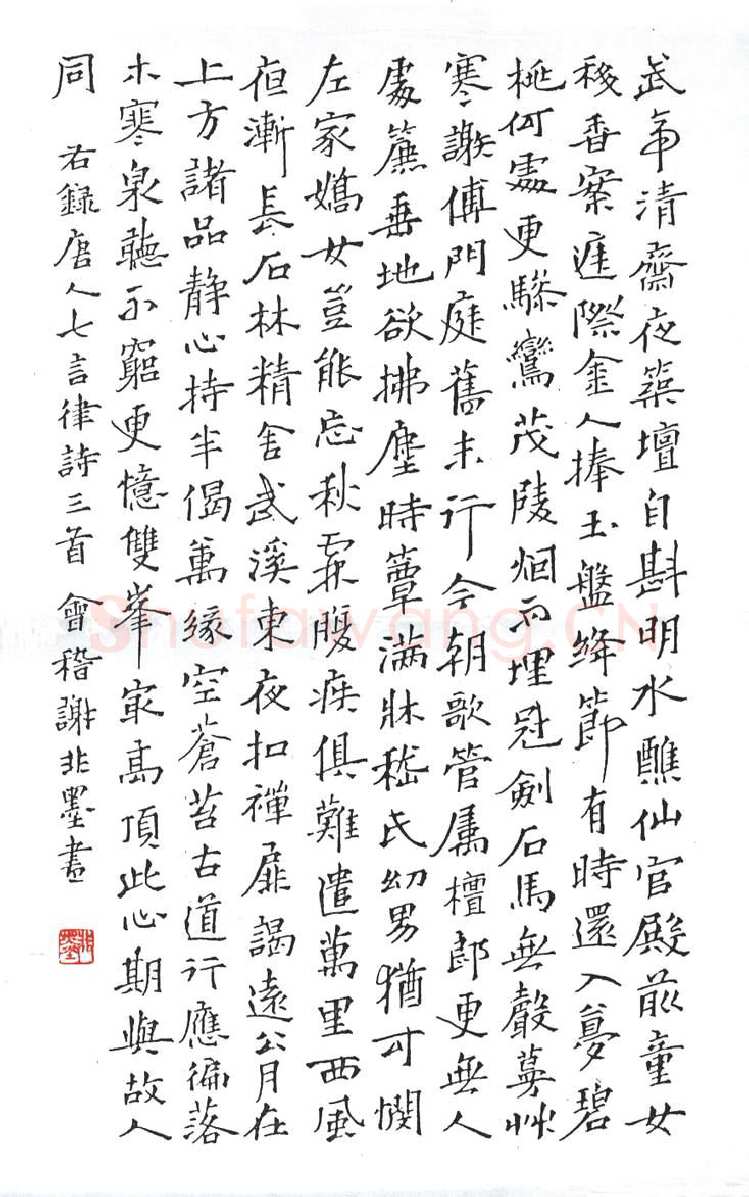 武帝清齋夜築壇自斟明水醮仙官殿前童女
移香案雲際金人捧玉盤絳節有時還入夢碧
桃何處更驂鸞茂陵烟雨埋冠劍石馬無聲蔓草
寒謝傅門庭舊末行今朝歌管屬檀郎更無人
處簾垂地欲拂塵時簟滿牀嵇氏幼男猶可憫
左家嬌女豈能忘秋霖腹疾俱難遣萬里西風
夜漸長石林精舍武溪東夜扣禪扉謁遠公月在
上方諸品靜心持半偈萬緣空蒼苔古道行應徧落
木寒泉聽不窮更憶雙峯最高頂此心期與故人
同 右錄唐人七言律詩三首 會稽謝非墨書
非墨
Shufawang.CN